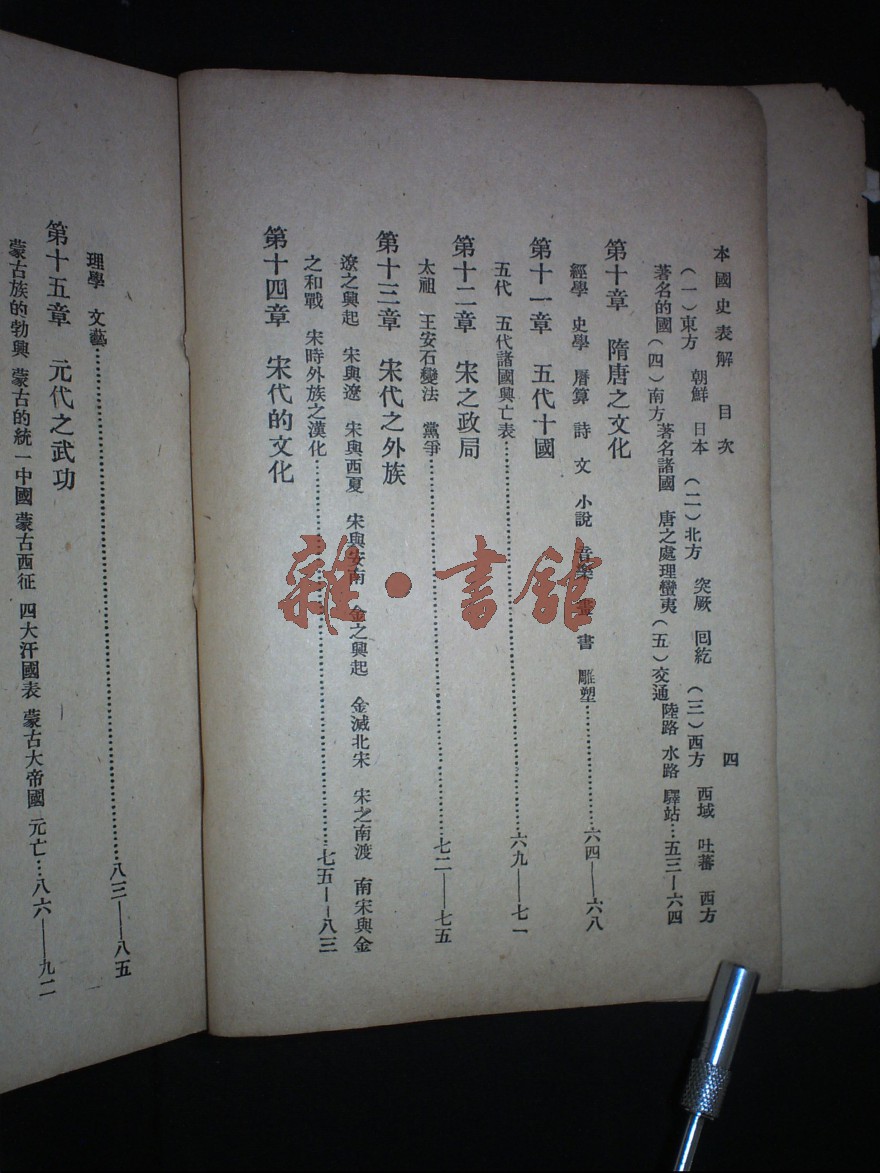 本國史表解 目次 四
(一)東方 朝鮮 日本 (二)北方 突厥 回紇 (三)西方 西域 吐蕃 西方
著名的國(四)南方著名諸國 唐之處理蠻夷(五)交通 陸路 水路 驛站…五三—六四
第十章 隋唐之文化
經學 史學 曆算 詩 文 小說 音樂 畫 書 雕塑…………六四——六八
第十一章 五代十國
五代 五代諸國興亡表…………六九——七一
第十二章 宋之政局
太祖 王安石變法 黨爭…………七二——七五
第十三章 宋代之外族
遼之興起 宋與遼 宋與西夏 宋與安南 金之興起 金滅北宋 宋之南渡 南宋與金
之和戰 宋時外族之漢化…………七五——八三
第十四章 宋代的文化
理學 文藝…………八三——八五
第十五章 元代之武功
蒙古族的勃興 蒙古的統一中國 蒙古西征 四大汗國表 蒙古大帝國 元亡…八六——九二
雜·書館